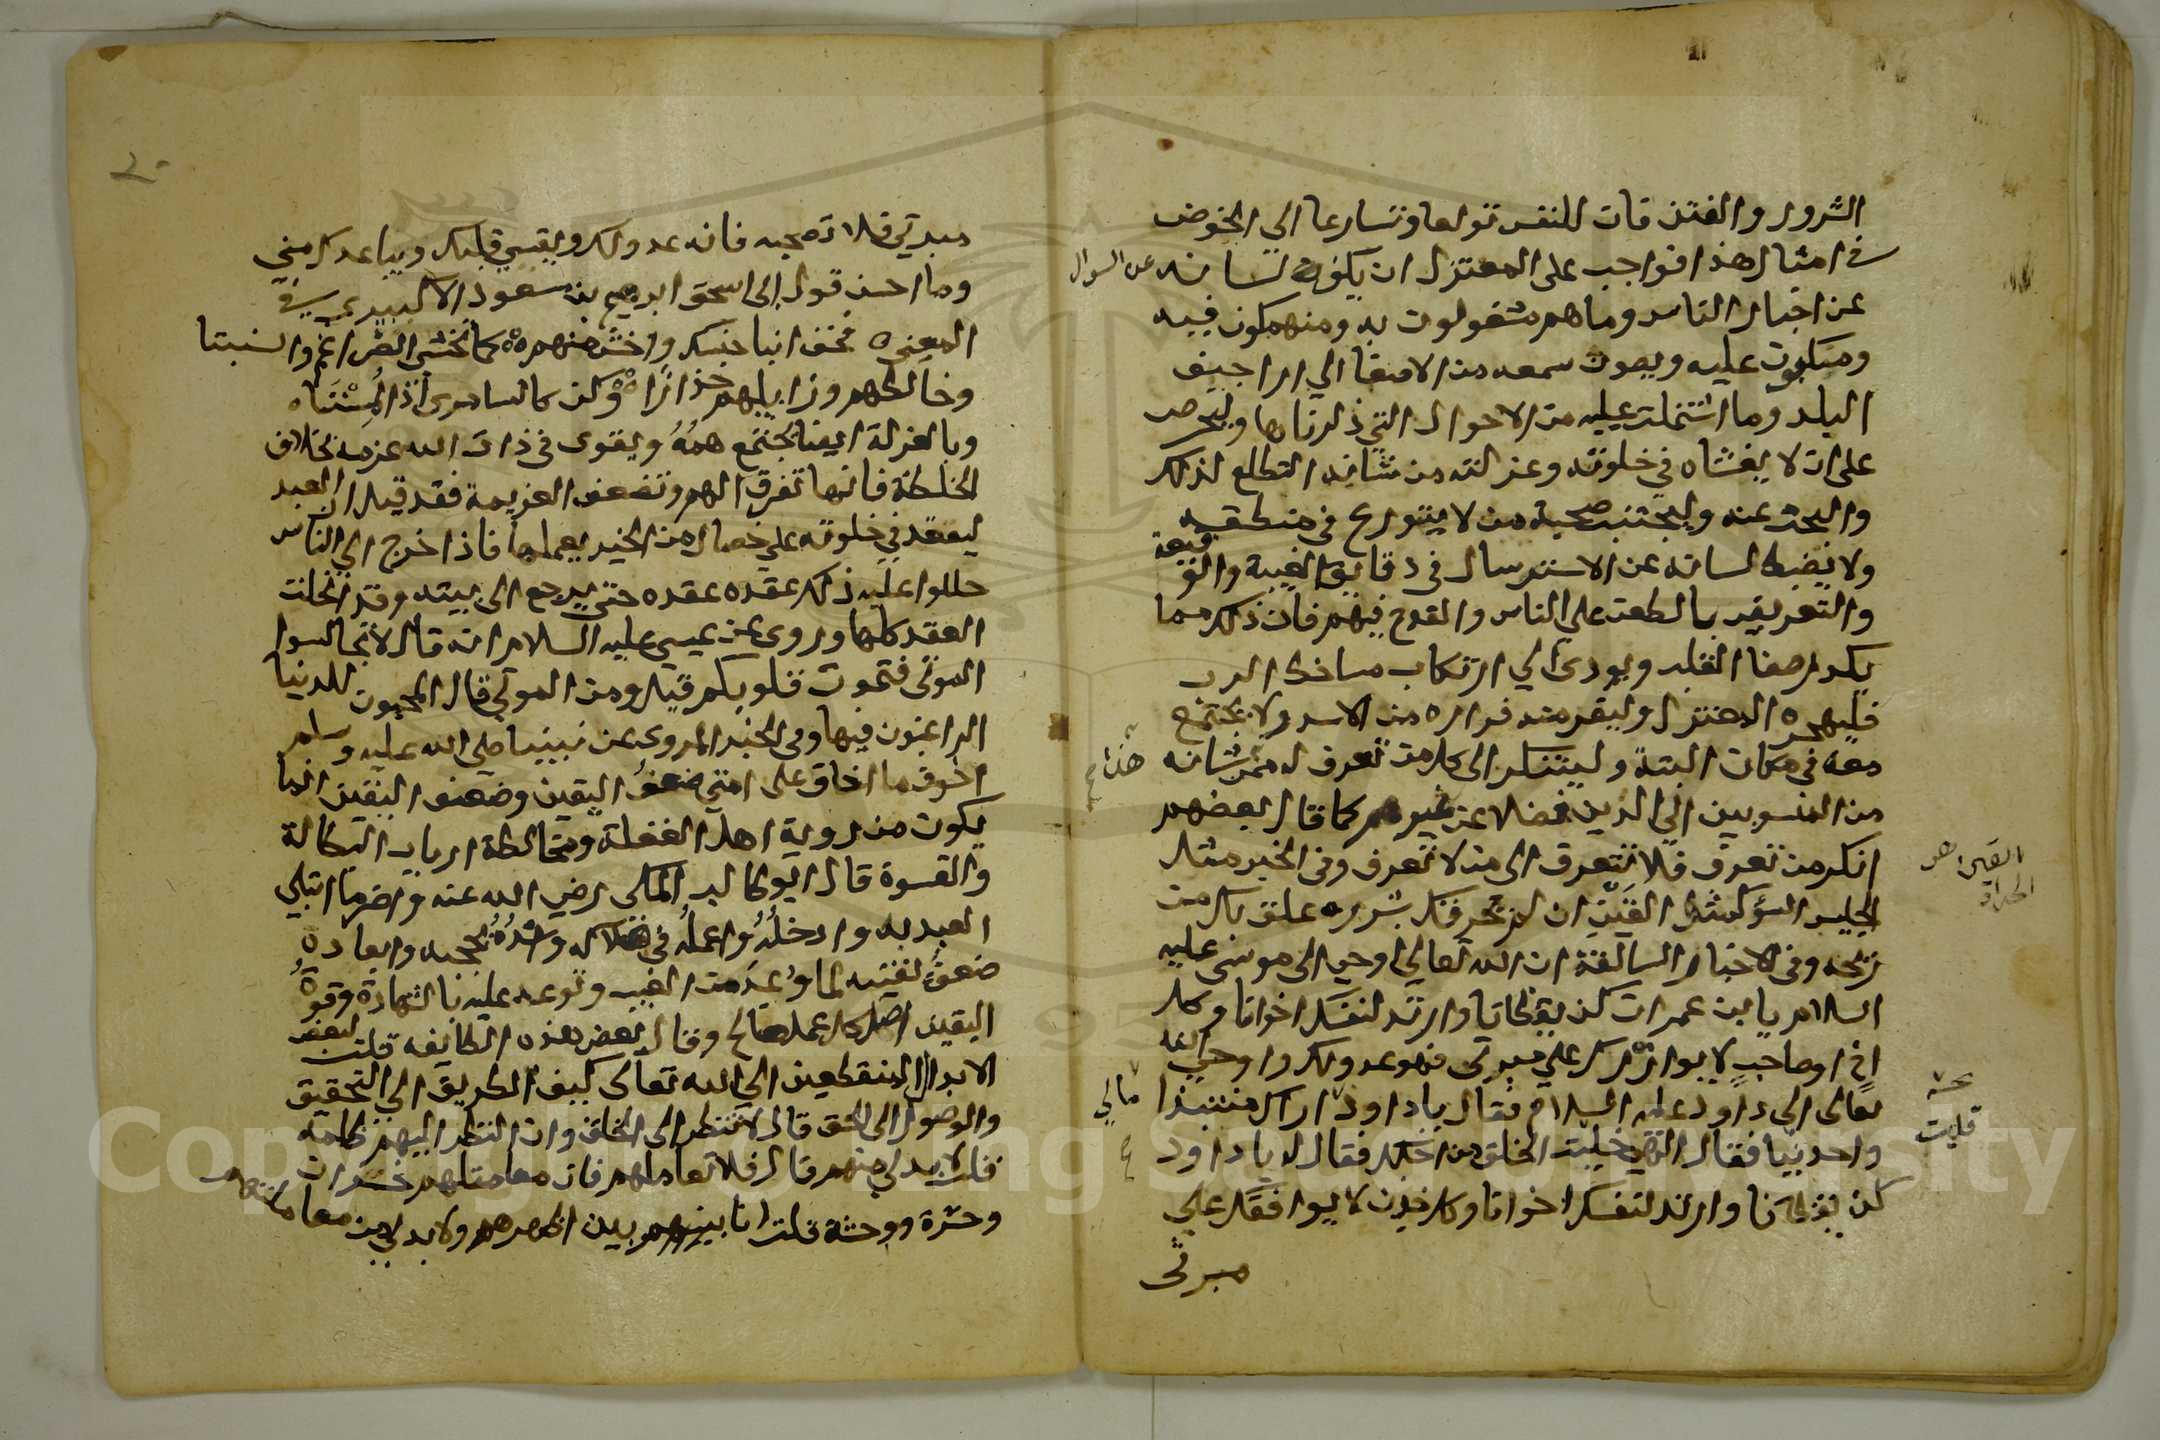 الشرور والفتن فان للنفس تولعا وتسارعا الي الخوض
في امثال هذا فواجب على المعتزل ان يكف لسانه عن السوال
عن اخبار الناس وما هم مشغولون به ومنهمكون فيه
ومنكبون عليه ويصون سمعه من الاصغا الي اراجيف
البلد وما اشتملت عليه من الاحوال التي ذكرناها وليحرص
على ان لا يغشاه في خلوته وعزلته من شانه التطلع لذلك
والبحث عنه وليجتنب صحبة من لا يتورع في منطقه
ولا يضبط لسانه عن الاسترسال في دقايق الغيبة والوقيعة
والتعريض بالطعن علي الناس والقدح فيهم فان ذلك مما
يكدر صفا القلب ويودي الي ارتكاب مساخط الرب
فليهجره المعتزل وليفر منه فراره من الاسد ولا يجتمع
معه في مكان البتة وليتنكر الى كل من تعرف له ممن شانه هذا
من المنسوبين الي الدين فضلا عن غيرهم كما قال بعضهم
انكر من تعرف فلا تتعرف الى من لا تعرف وفي الخبر مثل
الجليس السؤ كمثل القين ان لم يحرقك بشرره علق بك من
ريحه وفي الاخبار السالفة ان الله تعالي اوحي الى موسى عليه
السلام يا بن عمران كن يقظانا وارتد لنفسك اخوانا وكل
اخ او صاحب لا يوازرك على مبرتي فهو عدو لك واوحي الله
تعالى الى داود عليه السلام فقال يا داود مالي اراك منتبذا
واحدنيا فقال الهي قليت الخلق من اجلك فقال له يا داود
كن يقظانا وارتد لنفسك اخوانا وكل خدن لا يوافقك علي
مبرتي
القين هو
الحداد
قليت
مبرتي فلا تصحبه فانه عدو لك ويقسي قلبك ويباعدك مني
وما احسن قول ابى اسحق ابرهيم بن مسعود الالبيري في
المعنى فخف ابنا جنسك واخش منهم كما تخشى الضراغم والسبنتا
وخالطهم وزايلهم حذارا وكن كالسامرى اذا لمستاه
وبالعزلة ايضا يجتمع همه ويقوى في ذات الله عزمه بخلاف
الخلطة فانها تفرق الهم وتضعف العزيمة فقد قيل ان العبد
ليعقد في خلوته علي خصال من الخير يعملها فاذا خرج الي الناس
حللوا عليه ذلك عقده عقده حتي يرجع الى بيته وقد انحلت
العقد كلها وروى عن عيسى عليه السلام انه قال لا تجالسوا
الموتى فتموت قلوبكم قيل ومن الموتي قال المحبون للدنيا
الراغبون فيها وفي الخبر المروى عن نبينا صلى الله عليه وسلم
اخوف ما اخاف على امتي ضعف اليقين وضعف اليقين انما
يكون من روية اهل الغفلة ومخالطة ارباب البطالة
والقسوة قال ابو طالب المكى رضي الله عنه واضر ما ابتلي
العبد به وادخله واعمله في هلاكه واشده لحجبه وابعاده
ضعف يقينه لما وعد من الغيب وتوعد عليه بالشهادة وقوة
اليقين اصل كل عمل صالح وقال بعض هذه الطائفه قلت لبعض
الابدال المنقطعين الي الله تعالى كيف الطريق الي التحقيق
والوصول الى الحق قال لا تنظر الى الخلق فان النظر اليهم ظلمة
قلت لا بد لي منهم قال فلا تعاملهم فان معاملتهم خسران
وحسرة ووحشة قلت انا بينهم بين اظهرهم ولا بد لي من معاملتهم